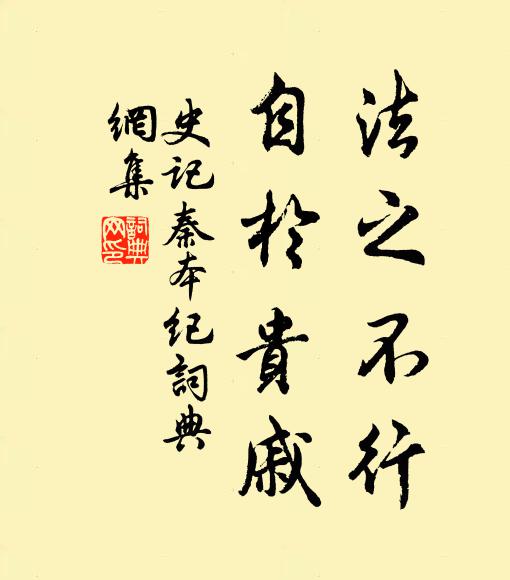 法之不行
自於貴戚
史記秦本紀詞典
網集
詞典
网印